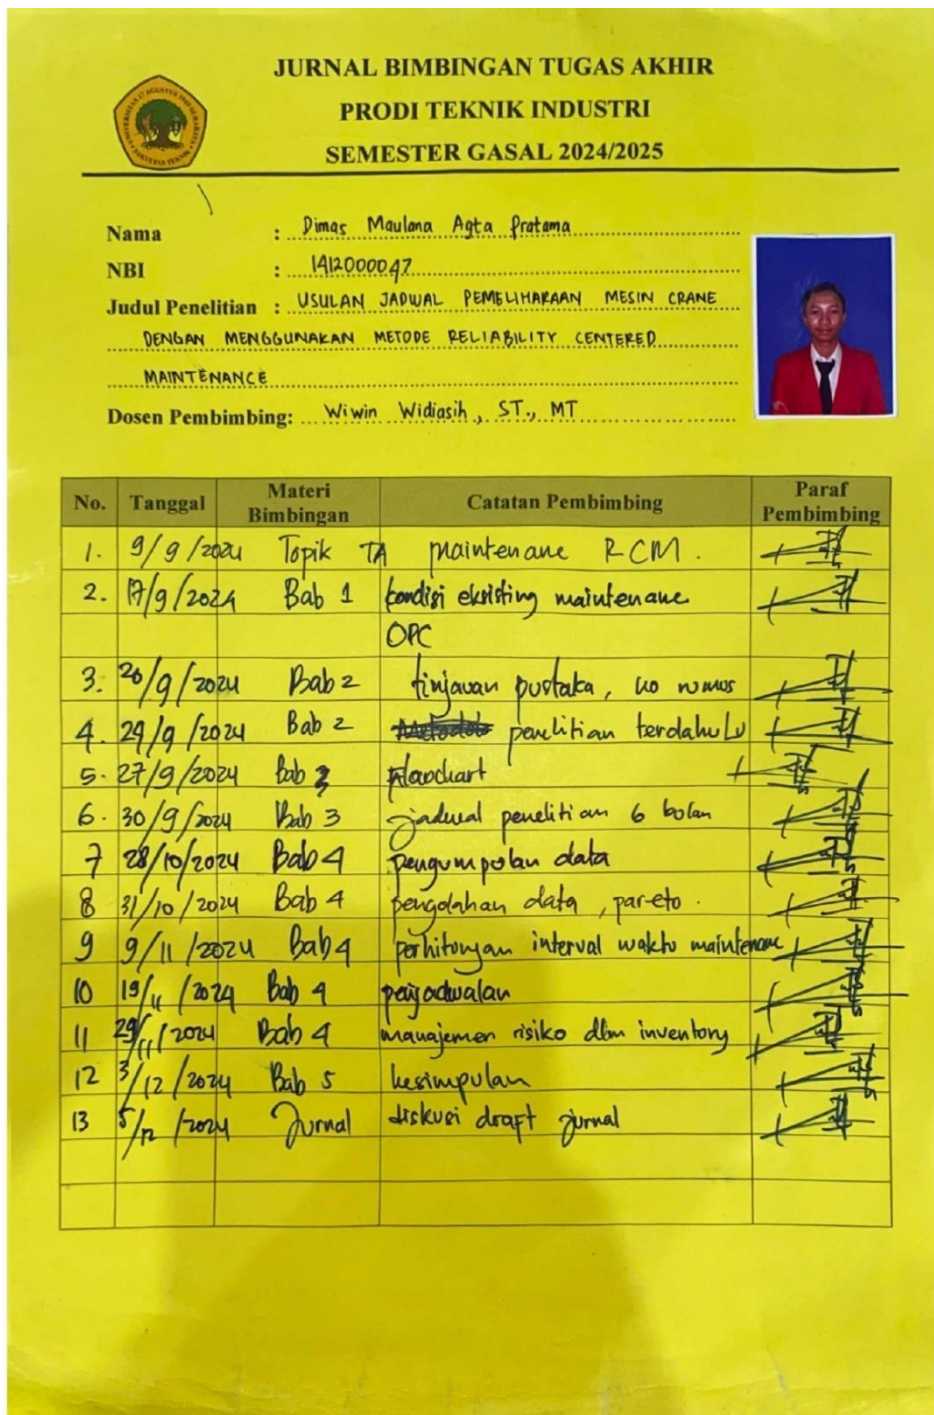 JURNAL BIMBINGAN TUGAS AKHIR
PRODI TEKNIK INDUSTRI
SEMESTER GASAL 2024/2025
UNIVERSITAS 17 AGUSTUS 1945 SURABAYA
FAKULTAS TEKNIK
Nama : Dimas Maulana Agta Pratama
NBI : 1412000047
Judul Penelitian : USULAN JADWAL PEMELIHARAAN MESIN CRANE
DENGAN MENGGUNAKAN METODE RELIABILITY CENTERED
MAINTENANCE
Dosen Pembimbing: Wiwin Widiasih, ST., MT
No. Tanggal Materi Bimbingan Catatan Pembimbing Paraf Pembimbing
1. 9/9/2024 Topik TA maintenane RCM.
2. 17/9/2024 Bab 1 kondisi eksisting maintenane
OPC
3. 20/9/2024 Bab 2 tinjauan pustaka, rumus
4. 24/9/2024 Bab 2 penelitian terdahulu
5. 27/9/2024 Bab 3 flowchart
6. 30/9/2024 Bab 3 jadwal penelitian 6 bulan
7 28/10/2024 Bab 4 pengumpulan data
8 31/10/2024 Bab 4 pengolahan data, pareto.
9 9/11/2024 Bab 4 perhitungan interval waktu maintenane
10 19/11/2024 Bab 4 penjadwalan
11 29/11/2024 Bab 4 manajemen risiko dlm inventory
12 3/12/2024 Bab 5 kesimpulan
13 5/12/2024 Jurnal diskusi draft jurnal